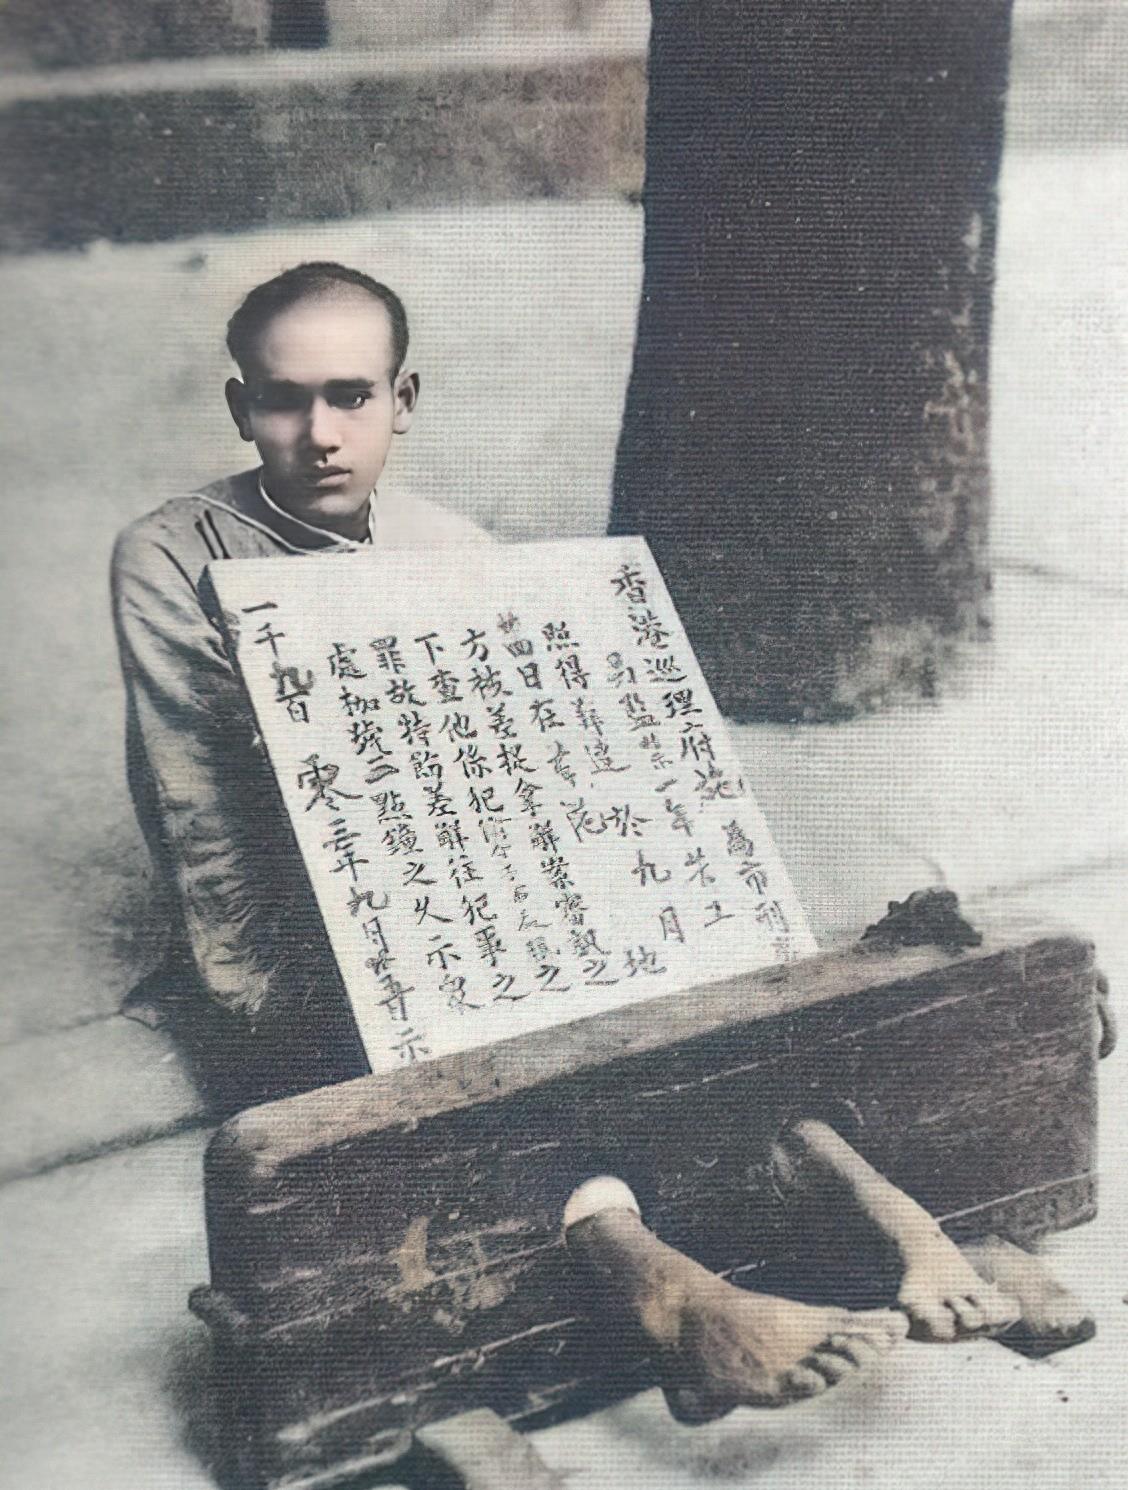 香港巡理府施 為市刑
監禁一年苦工
照得 達 於九月
廿四日在 地
方被差捉拿解案審訊之
下查他係犯 之
罪故特飭差解往犯事之
處枷號二點鐘之久示衆
一千九百零三年九月 示